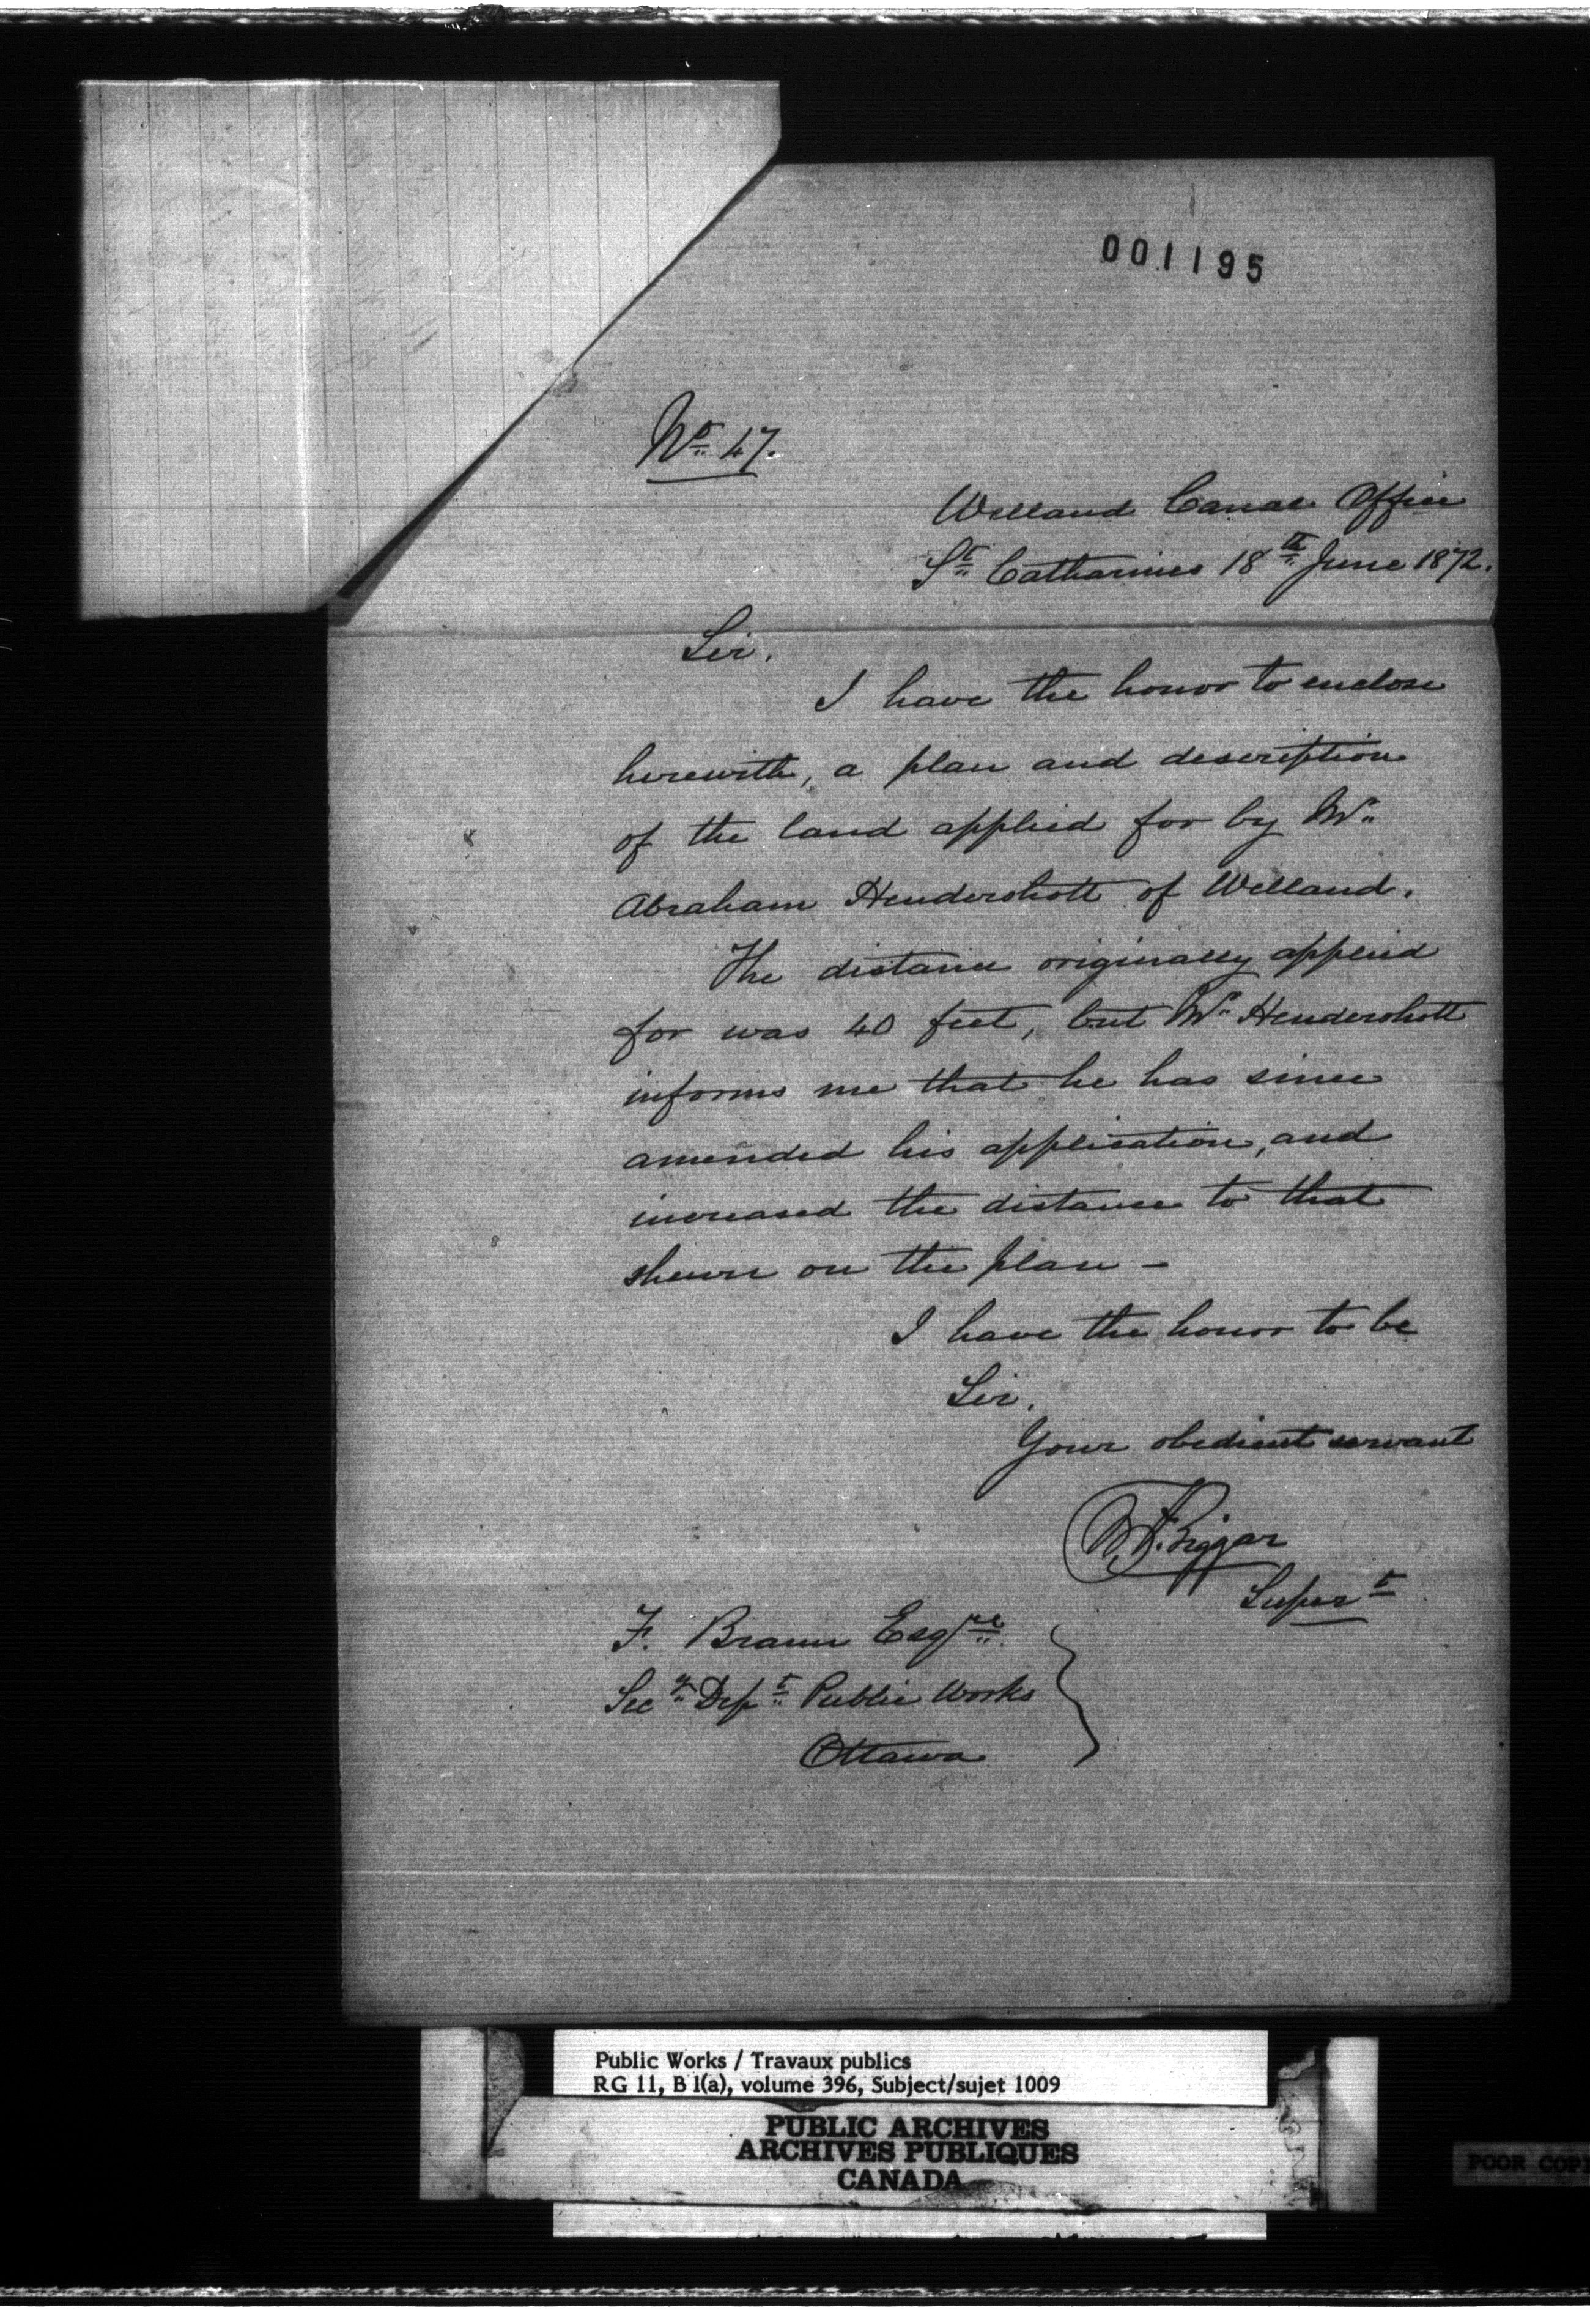 001195
No. 47.
Welland Canal Office
St Catharines 18th June 1872.
Sir.
I have the honor to enclose
herewith, a plan and description
of the land applied for by Mr
Abraham Hendershott of Welland.
The distance originally applied
for was 40 feet, but Mr Hendershott
informs me that he has since
amended his application, and
increased the distance to that
shewn on the plan —
I have the honor to be
Sir,
Your obedient servant
Biggar
Supert
F. Braun Esqre
Secy Dept Public Works
Ottawa
Public Works / Travaux publics
RG 11, B 1(a), volume 396, Subject/sujet 1009
PUBLIC ARCHIVES
ARCHIVES PUBLIQUES
CANADA
POOR COP